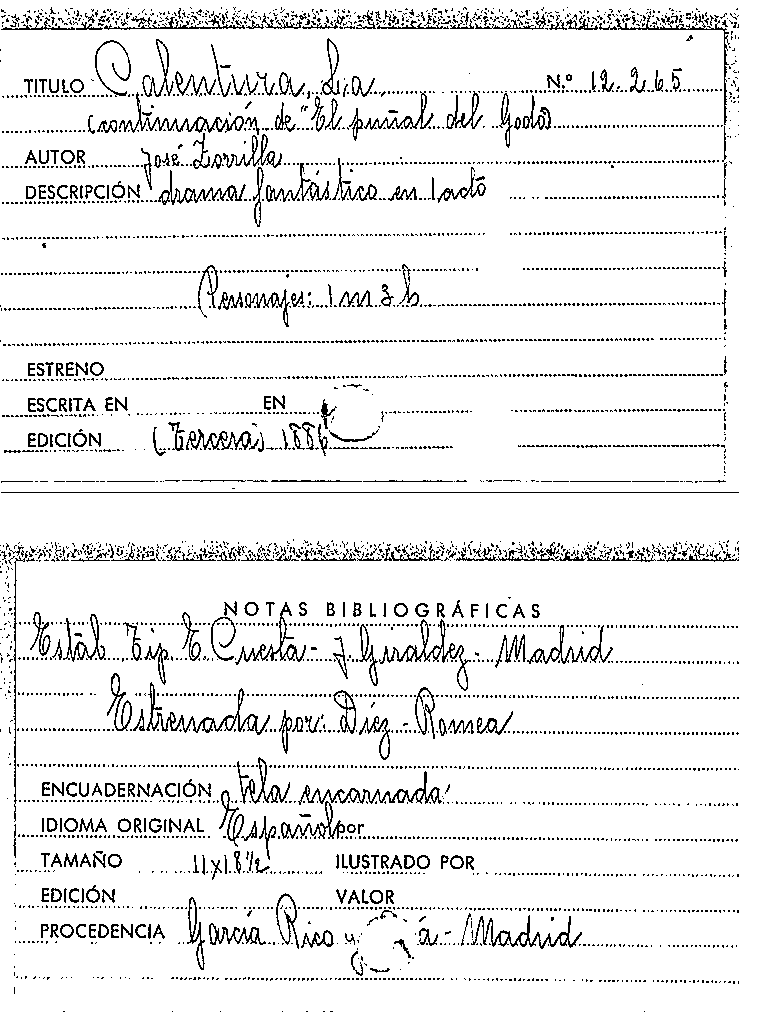 TITULO Calentura, La Nº 12.265
(continuación de "El puñal del Godo)
AUTOR José Zorrilla
DESCRIPCIÓN drama fantástico en 1 acto
Personajes: 1 m 3 h
ESTRENO
ESCRITA EN EN
EDICIÓN (Tercera) 1886
NOTAS BIBLIOGRÁFICAS
Estab. Tip. E. Cuesta - J. Giraldez - Madrid
Estrenada por: Díez - Romea
ENCUADERNACIÓN tela encarnada
IDIOMA ORIGINAL Español por
TAMAÑO 11x18½ ILUSTRADO POR
EDICIÓN VALOR
PROCEDENCIA García Rico y á - Madrid